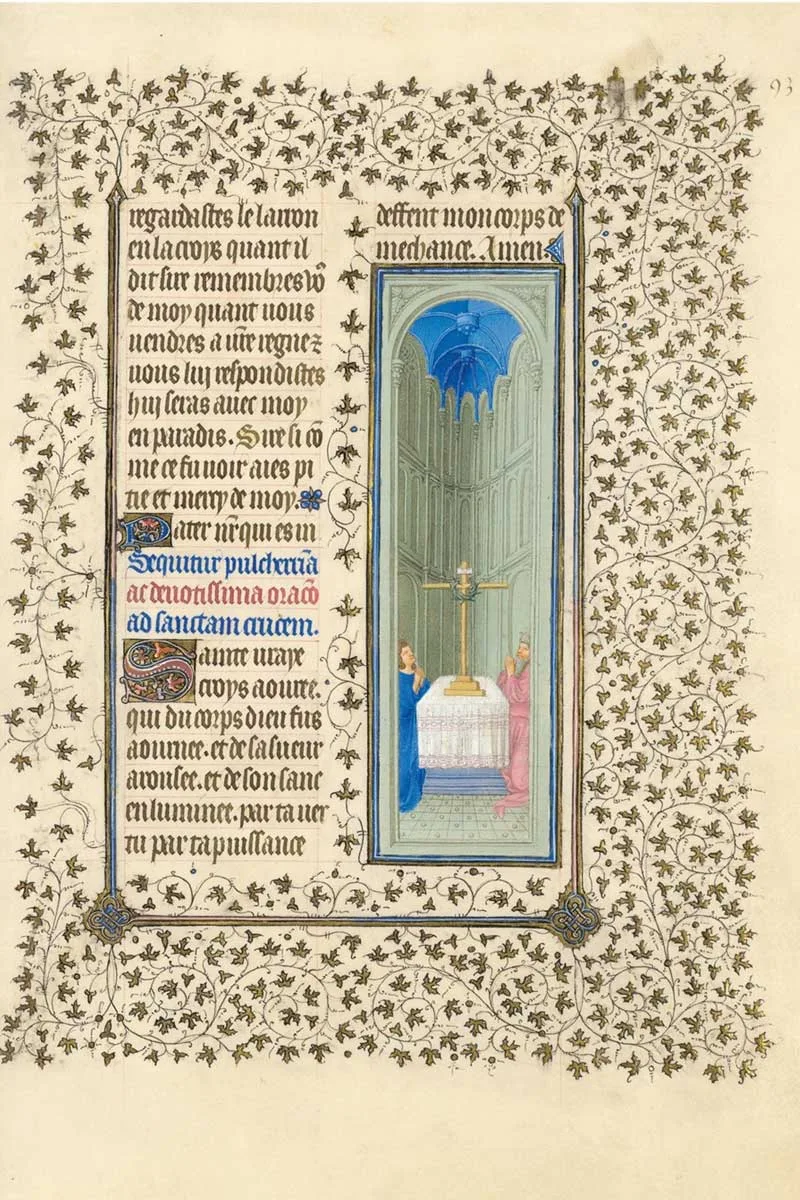 93
regardastes le larron
en la croys quant il
dit sire remembres vo᷑
de moy quant vous
vendres a vr̃e regne z
vous luy respondistes
huy seras avec moy
en paradis. Sire si cõ
me ce fu voir aies pi
tie et mercy de moy.
Pater nr̃ qui es in
Sequitur pulcherria
ac devotissima oracõ
ad sanctam crucem.
Sainte vraye
croys aouree.
qui du corps dieu fus
aournee. et de sa sueur
arousee. et de son sanc
enluminee. par ta ver
tu par ta puissance
deffent mon corps de
mechance. Amen.